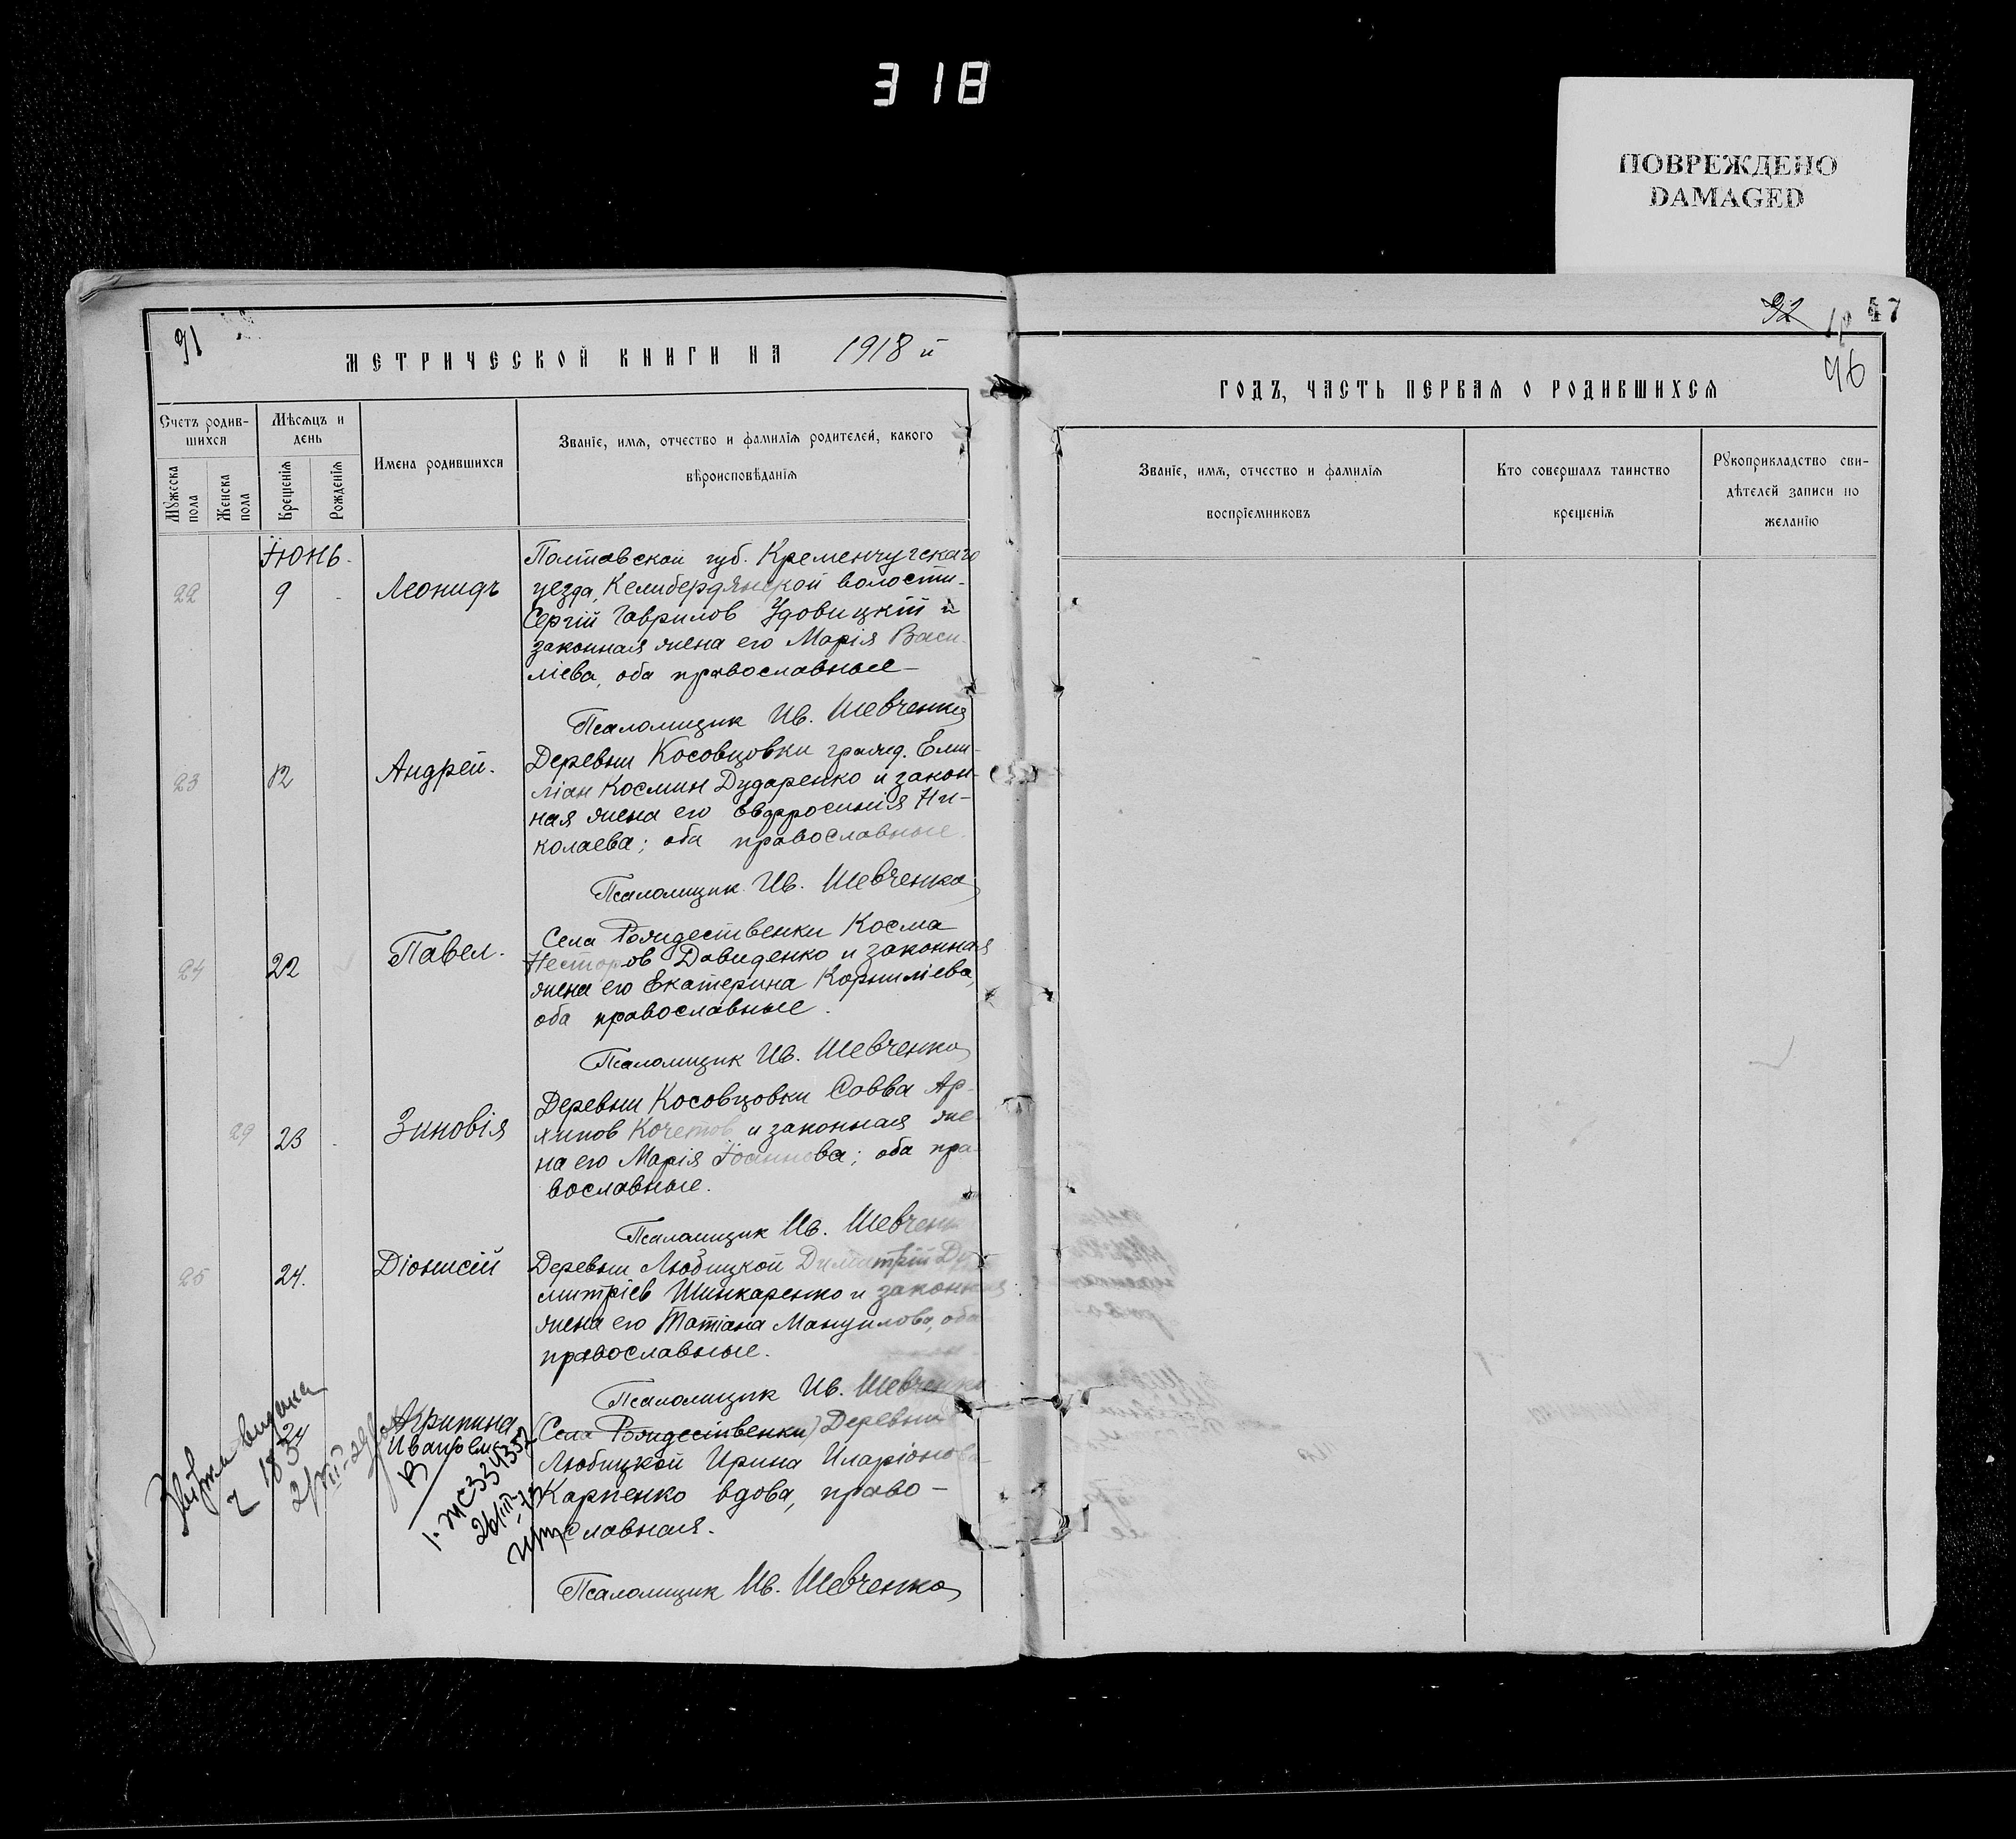 318
ПОВРЕЖДЕНО
DAMAGED
91
МЕТРИЧЕСКОЙ КНИГИ НА 1918 й
Счетъ родив-
шихся
Мѣсяцъ и
день
Имена родившихся
Званіе, имя, отчество и фамилія родителей, какого
вѣроисповѣданія
Мужеска пола
Женска пола
Крещенія
Рожденія
Іюнь.
22 9 Леонидъ
Полтавской губ. Кременчугскаго
уезда, Келибердянской волости
Сергій Гаврилов Удовицкій и
законная жена его Марія Васи-
ліева, оба православные
Псаломщик Ив. Шевченко
23 12 Андрей.
Деревни Косовцовки гражд. Еми-
ліан Космин Дударенко и закон-
ная жена его Евфросинія Ни-
колаева; оба православные.
Псаломщик Ив. Шевченко
24 22 Павел.
Села Рождественки Косма
Несторов Давиденко и законная
жена его Екатерина Корниліева,
оба православные.
Псаломщик Ив. Шевченко
29 23 Зиновія
Деревни Косовцовки Савва Ар-
хипов Кочетов и законная же-
на его Марія Іоаннова; оба пра-
вославные.
Псаломщик Ив. Шевченко
25 24. Діонисій
Деревни Любицкой Димитрій Ди-
митріев Шинкаренко и законная
жена его Татіана Мануилова, оба
православные.
Псаломщик Ив. Шевченко
Агрипина
(Села Рождественки) Деревни
Любицкой Ирина Иларіонова
Карпенко вдова, право-
славная.
Псаломщик Ив. Шевченко
92
47
46
ГОДЪ, ЧАСТЬ ПЕРВАЯ О РОДИВШИХСЯ
Званіе, имя, отчество и фамилія
воспріемниковъ
Кто совершалъ таинство
крещенія
Рукоприкладство сви-
дѣтелей записи по
желанію